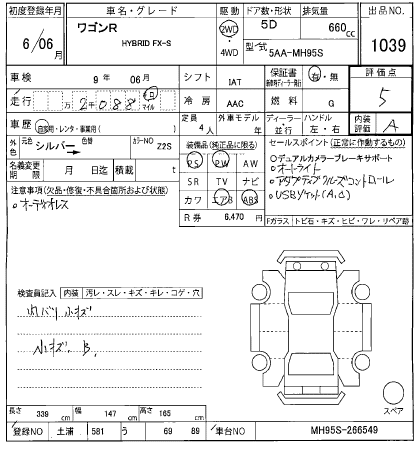 初度登録年月
車名・グレード
駆動
ドア数・形状
排気量
出品NO.
6/06月
ワゴンR
HYBRID FX-S
2WD
4WD
5D
660cc
型式
5AA-MH95S
1039
車検
9年 06月
シフト
IAT
保証書
有・無
評価点
5
走行
万2千088
Km
マイル
冷房
AAC
燃料
G
車歴
自家用・レンタ・事業用( )
定員
4人
外車モデル
年
ディーラー
並行
ハンドル
左・右
内装評価
A
外色
元色
シルバー
→
色替
カラーNO
Z2S
装備品(純正品に限る)
セールスポイント(正常に作動するもの)
PS PW AW
○デュアルカメラブレーキサポート
名義変更期限
月 日迄
積載
t
SR TV ナビ
○オートライト
注意事項(欠品・修復・不具合箇所および状態)
○アダプティブクルーズコントロール
○オーディオレス
カワ エアB ABS
○USBソケット(A,C)
R券
6,470円
Fガラス
トビ石・キズ・ヒビ・ワレ・リペア跡
検査員記入
内装
汚レ・スレ・キズ・キレ・コゲ・穴
内バリ小キズ
小キズ、B,
スペア
長さ
339cm
幅
147cm
高さ
165cm
登録NO
土浦 581 う 69 89
車台NO
MH95S-266549